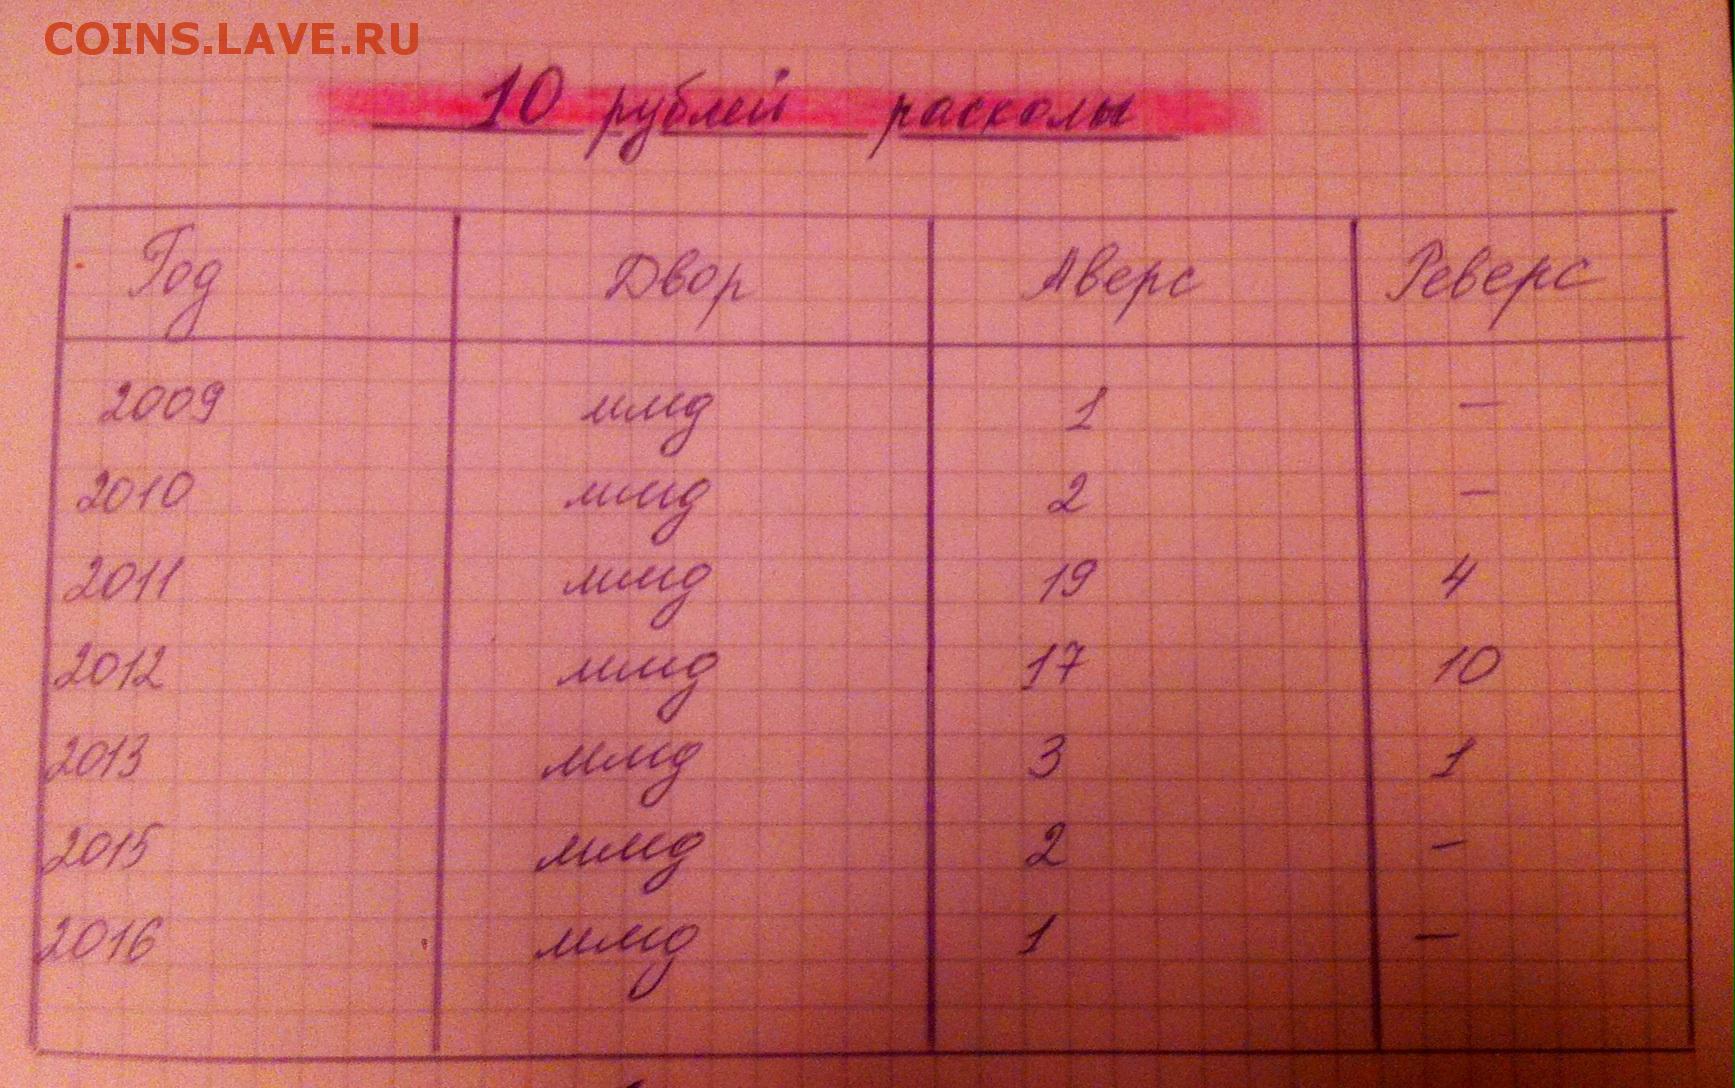 COINS.LAVE.RU
10 рублей расколы
Год Двор Аверс Реверс
2009 ммд 1 —
2010 ммд 2 —
2011 ммд 19 4
2012 ммд 17 10
2013 ммд 3 1
2015 ммд 2 —
2016 ммд 1 —